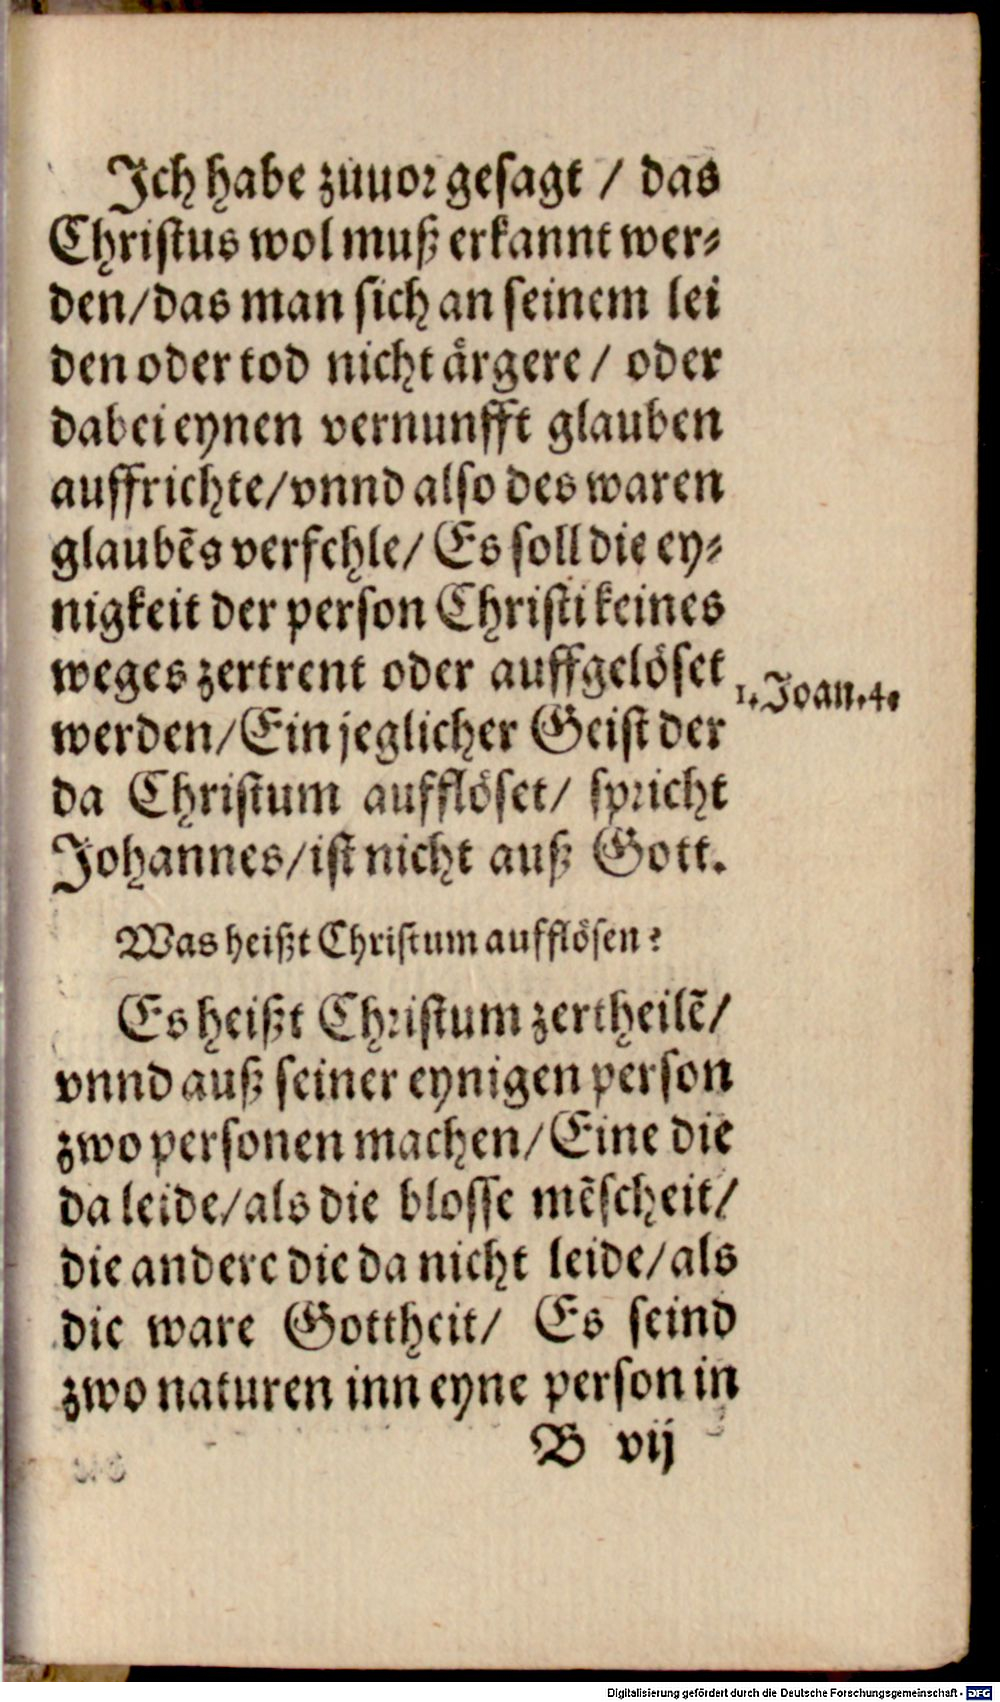 Ich habe zuuor gesagt / das
Christus wol muß erkannt wer⸗
den/das man sich an seinem lei
den oder tod nicht ärgere / oder
dabei eynen vernunfft glauben
auffrichte/vnnd also des waren
glaubẽs verfehle/ Es soll die ey⸗
nigkeit der person Christi keines
weges zertrent oder auffgelöset
1. Joan. 4.
werden/Ein jeglicher Geist der
da Christum aufflöset/ spricht
Johannes/ist nicht auß Gott.
Was heißt Christum aufflösen?
Es heißt Christum zertheilẽ/
vnnd auß seiner eynigen person
zwo personen machen/Eine die
da leide/als die blosse mẽscheit/
die andere die da nicht leide/als
die ware Gottheit/ Es seind
zwo naturen inn eyne person in
B vij
Digitalisierung gefördert durch die Deutsche Forschungsgemeinschaft - DFG